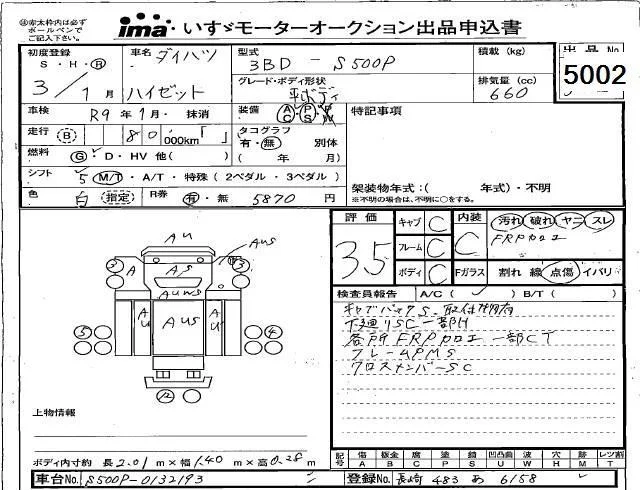 ㊟赤太枠内は必ず
ボールペンで
ご記入下さい。
ima いすゞモーターオークション出品申込書
初度登録 車名 ダイハツ 型式 積載 (kg) 出品No
S・H・Ⓡ 3BD - S500P 5002
3/1月 ハイゼット グレード・ボディ形状 平ボディ 排気量 (cc) 660
車検 R9年1月・抹消 装備 A/C P/S P/W 特記事項
走行 Ⓑ 80,000km「 」 タコグラフ 有・無 別体
燃料 Ⓖ・D・HV 他( ) ( 年 月)
シフト 5 M/T・A/T・特殊 (2ペダル・3ペダル) 架装物年式:( 年式)・不明
色 白 指定 R券 有・無 5870円 ※不明の場合は、不明に○をする。
評価 キャブ C 内装 汚れ 破れ ヤニ スレ
3.5 フレーム C C FRP加工
ボディ C Fガラス 割れ 線 点傷 イバリ
AU AUS
3 A AS 3
AUWS
AU AUS AU
5 4
12
検査員報告 A/C( ) B/T( )
下廻りSC一部H
各所FRP加工一部CT
フレームPMS
クロスメンバーSC
上物情報
ボディ内寸約 長2.01m×幅1.40m×高0.28m
記号 傷 板金 腐 塗 錆 凹凸曲 波 穴 跡 レンズ割
A B C P S U W H M T
車台No. S500P-0132193 登録No. 長崎 483 あ 6158